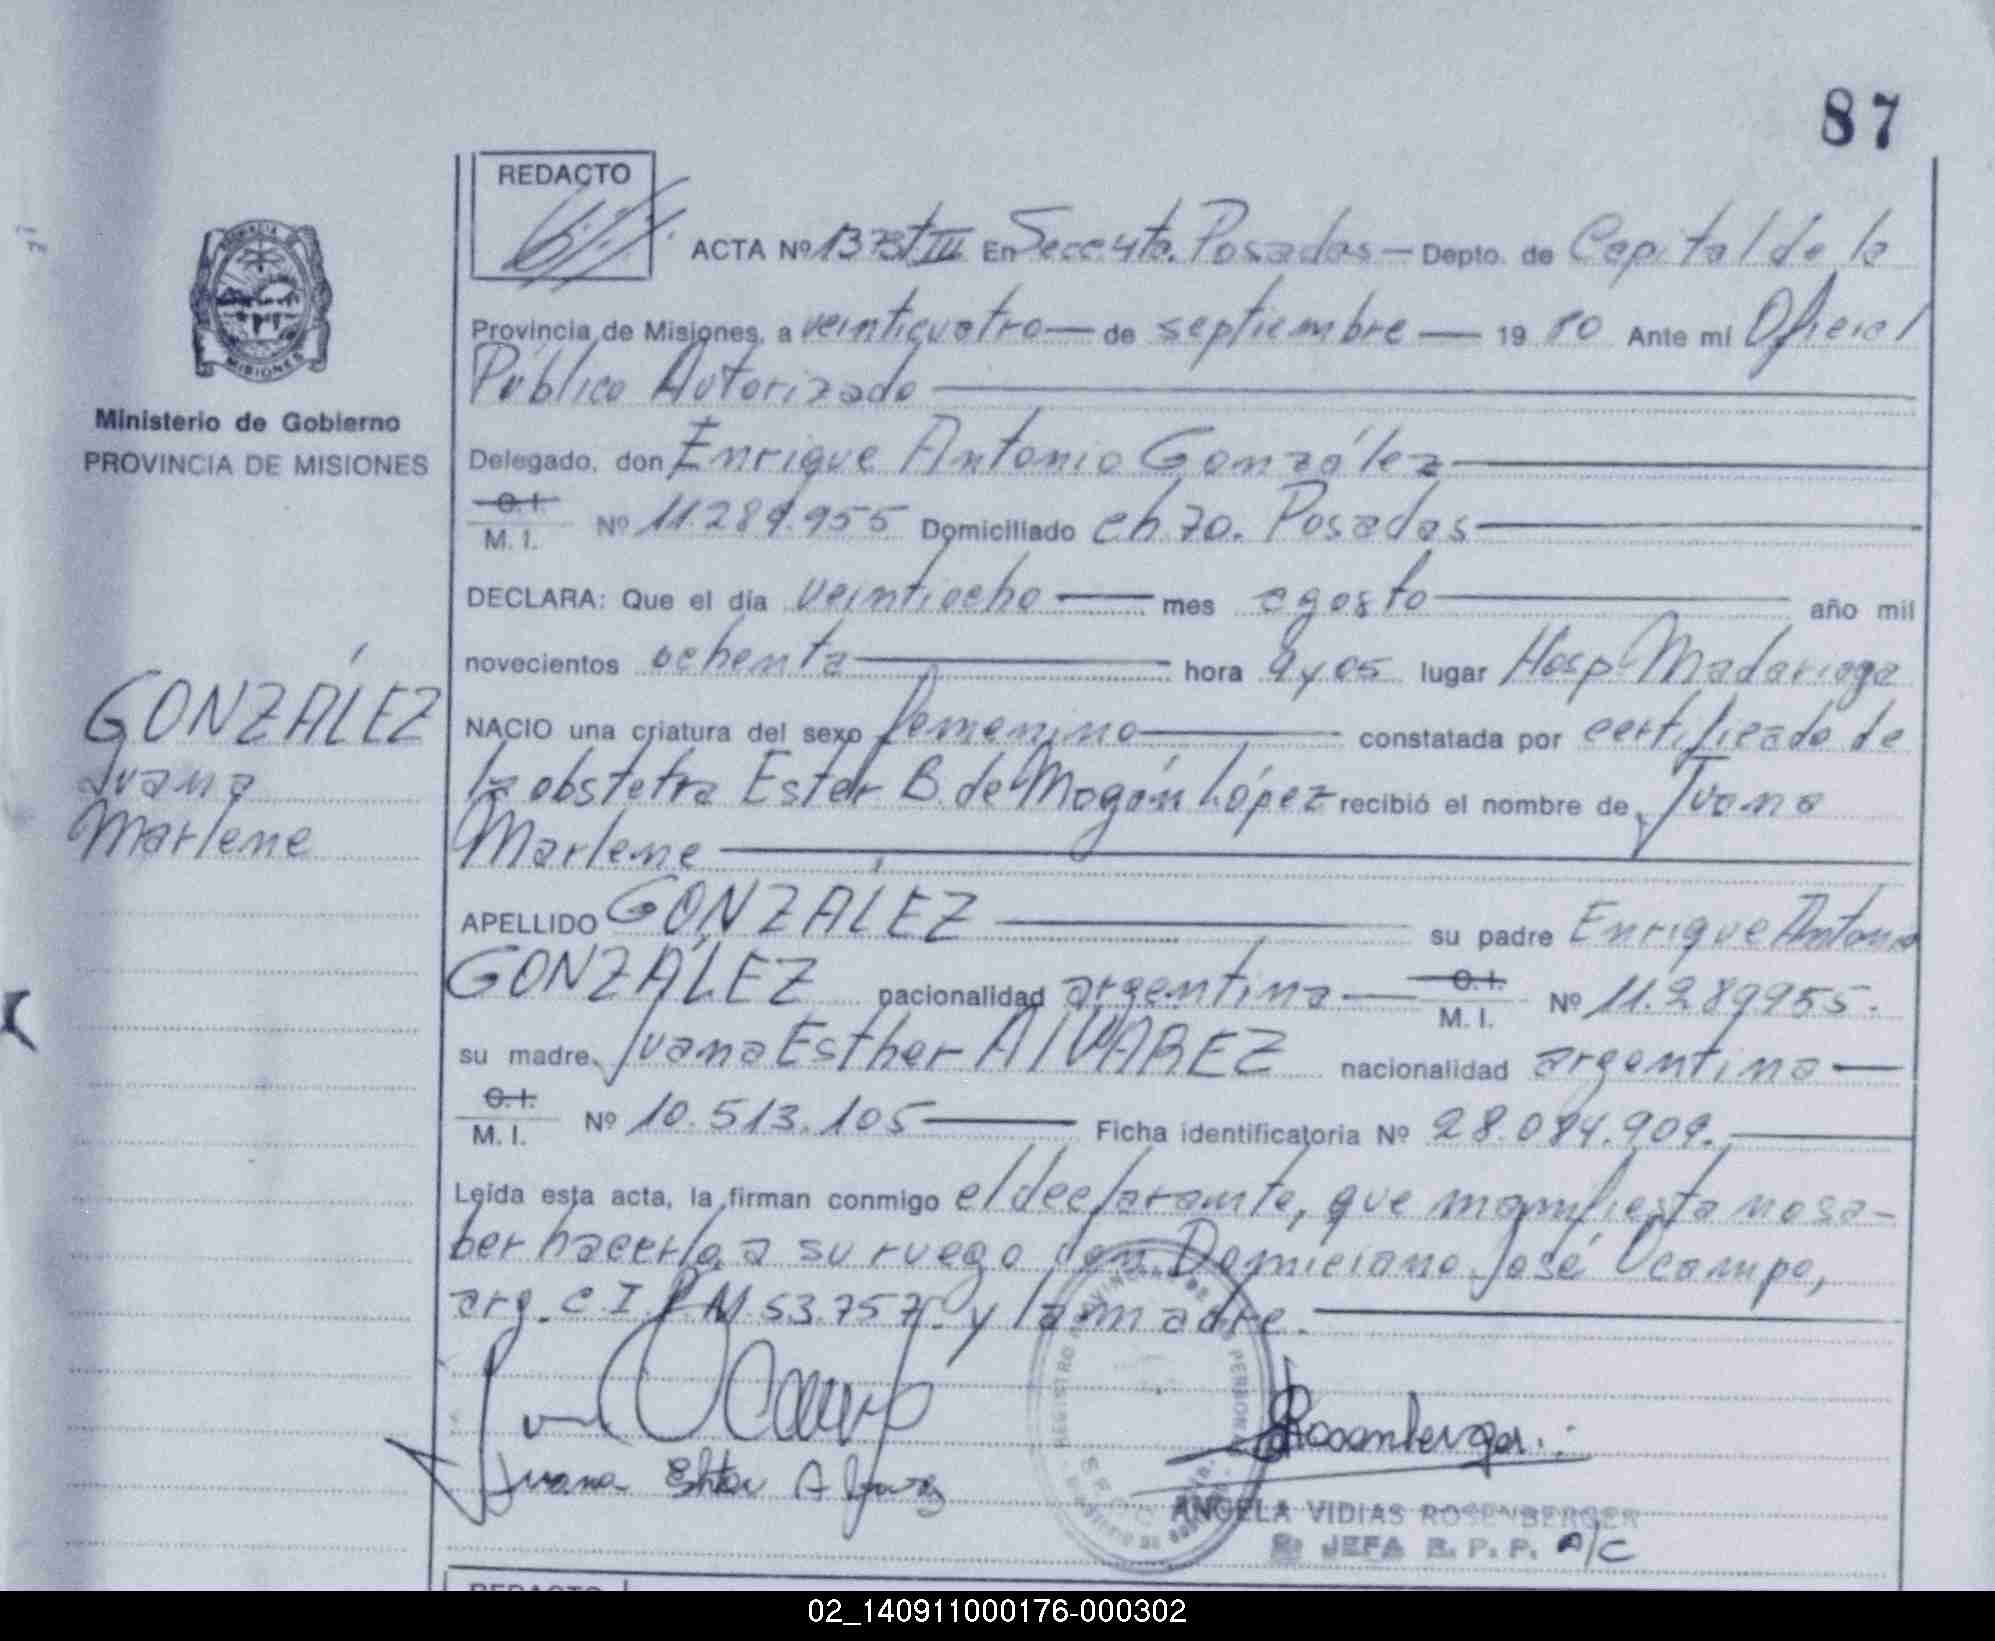 87
REDACTO
ACTA Nº 1373 T III En Secc. 4ta. Posadas — Depto. de Capital de la
Provincia de Misiones, a veinticuatro — de septiembre — 19 80 Ante mi Oficial
Público Autorizado
Ministerio de Gobierno
PROVINCIA DE MISIONES
Delegado, don Enrique Antonio González
C. I. M. I. Nº 11.289.955 Domiciliado ch. 70. Posadas
DECLARA: Que el día veintiocho — mes agosto año mil
novecientos ochenta hora 9 y 05 lugar Hosp. Madariaga
GONZÁLEZ
Juana
Marlene
NACIO una criatura del sexo femenino constatada por certificado de
la obstetra Ester B. de Magán López recibió el nombre de Juana
Marlene
APELLIDO GONZÁLEZ su padre Enrique Antonio
GONZÁLEZ nacionalidad argentina — C. I. M. I. Nº 11.289955.
su madre Juana Esther AlVAREZ nacionalidad argentina —
C. I. M. I. Nº 10.513.105 — Ficha identificatoria Nº 28.084.909.
Leída esta acta, la firman conmigo el declarante, que manifiesta no sa-
ber hacerlo, a su ruego don Domiciano José Ocampo,
arg. C.I.P.M. 53.757. y la madre.
Ocampo
Juana Ehter Alvarez
Rosenberger
ANGELA VIDIAS ROSENBERGER
JEFA R. P. P. A/C
REDACTO
02_140911000176-000302